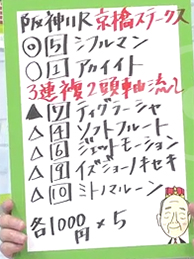 阪神11R 京橋ステークス
◎ 5 シフルマン
○ 1 アカイイト
3連複2頭軸流し
▲ 7 ティグラーシャ
△ 4 ソフトフルート
△ 6 ジェットモーション
△ 9 イズジョーノキセキ
△ 10 ミトノマルーン
各1000
円×5